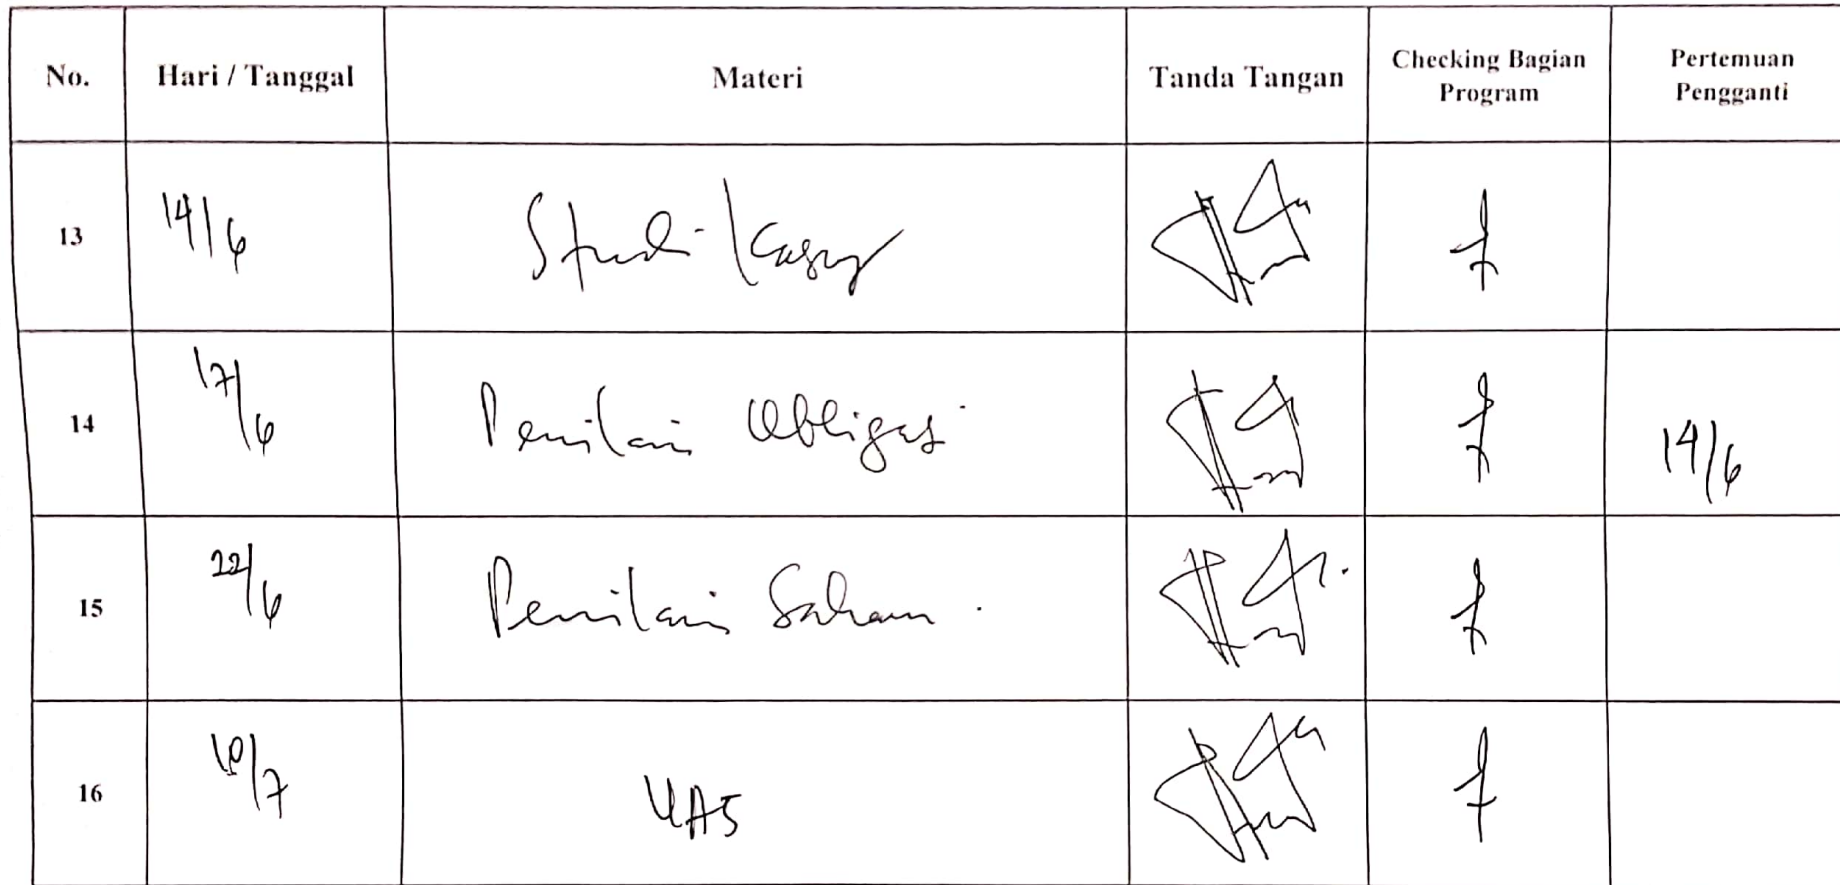 No. Hari / Tanggal Materi Tanda Tangan Checking Bagian Program Pertemuan Pengganti
13 14/6 Studi Kasus
14 17/6 Penilaian Obligasi 14/6
15 22/6 Penilaian Saham.
16 10/7 UAS